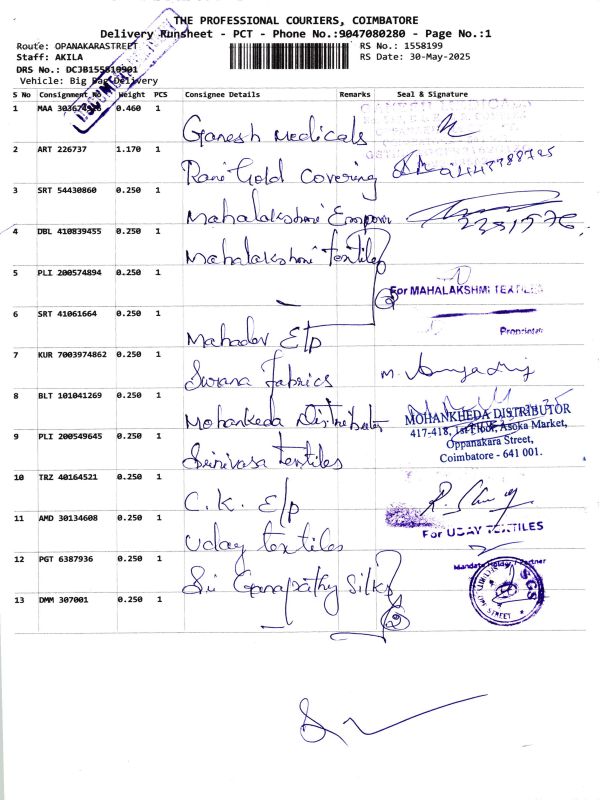 THE PROFESSIONAL COURIERS, COIMBATORE
Delivery Runsheet - PCT - Phone No.:9047080280 - Page No.:1
Route: OPANAKARASTREET
RS No.: 1558199
Staff: AKILA
RS Date: 30-May-2025
DRS No.: DCJB155819901
Vehicle: Big Bag Delivery
S No Consignment No Weight PCS Consignee Details Remarks Seal & Signature
1 MAA 0.460 1 Ganesh Medicals
2 ART 226737 1.170 1 Rani Gold Covering
3 SRT 54430860 0.250 1 Mahalakshmi
4 DBL 410839455 0.250 1 Mahalakshmi Textiles
5 PLI 200574894 0.250 1
For MAHALAKSHMI TEXTILES
Proprietor
6 SRT 41061664 0.250 1 Mahadev E/p
7 KUR 7003974862 0.250 1 Swara Fabrics
8 BLT 101041269 0.250 1 Mohankeda Distributer
MOHANKHEDA DISTRIBUTOR
417-418, 1st Floor, Asoka Market,
Oppanakara Street,
Coimbatore - 641 001.
9 PLI 200549645 0.250 1 Srinivasa textiles
10 TRZ 40164521 0.250 1 C.K. E/p
11 AMD 30134608 0.250 1 Uday textiles
For UDAY TEXTILES
12 PGT 6387936 0.250 1 Sri Ganapathy Silks
SGS
STREET
13 DMM 307001 0.250 1